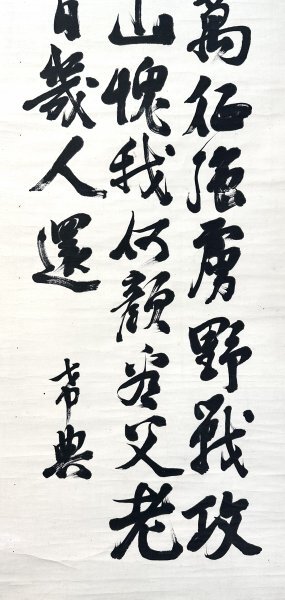 萬征強虜野戰攻
山愧我何顏看父老
日幾人還
希典